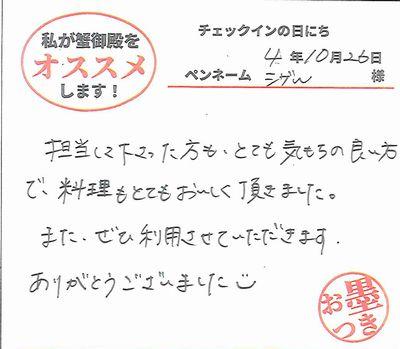 私が蟹御殿を
オススメ
します！
チェックインの日にち
4年10月26日
ペンネーム シゲん 様
担当して下さった方も、とても気もちの良い方
で、料理もとてもおいしく頂きました。
また、ぜひ利用させていただきます.
ありがとうございました
お墨
つき